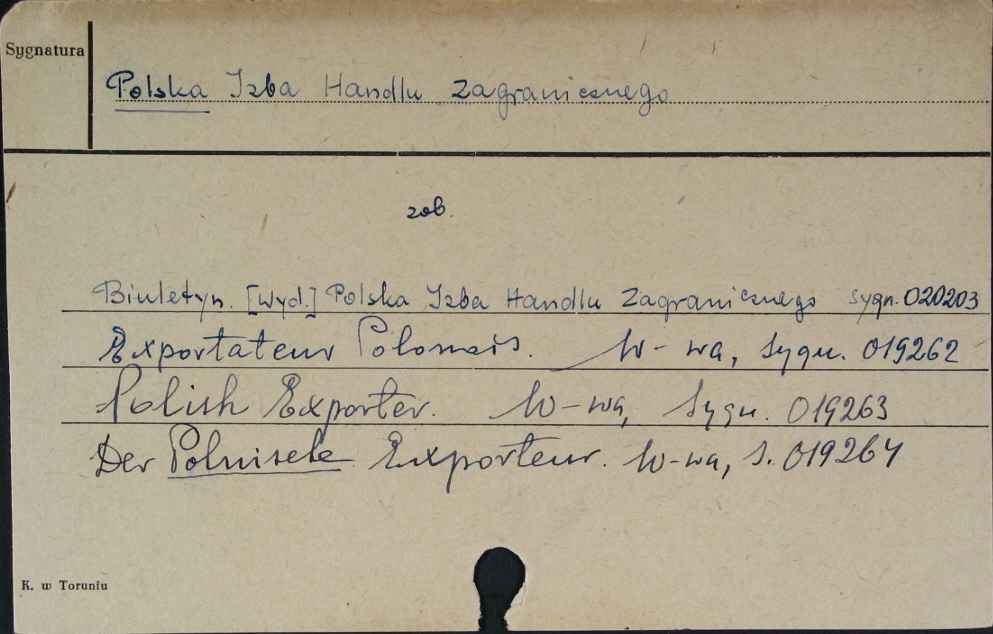 Sygnatura
Polska Izba Handlu Zagranicznego
zob.
Biuletyn. [Wyd.] Polska Izba Handlu Zagranicznego sygn. 020203
Exportateur Polonais. W-wa, Sygn. 019262
Polish Exporter. W-wa, Sygn. 019263
Der Polnische Exporteur. W-wa, S. 019264
K. w Toruniu